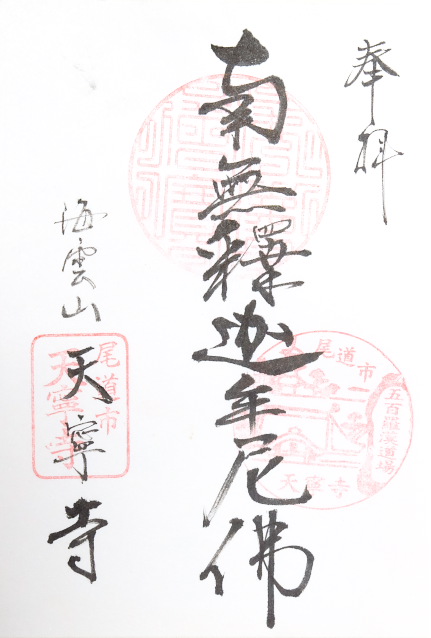 奉拝
南無釋迦牟尼佛
海雲山
天寧寺
尾道市
五百羅漢道場
天寧寺
尾道市
天寧寺